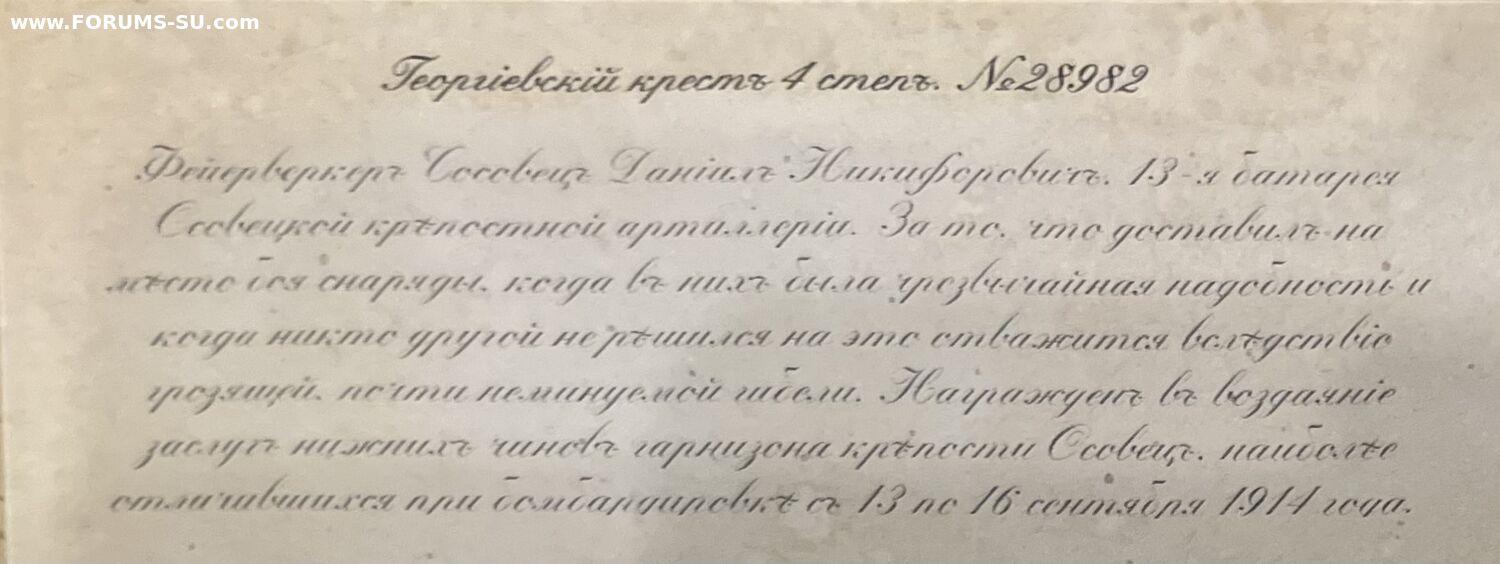 www.FORUMS-SU.com
Георгіевскій крестъ 4 степ. №28982
Фейерверкеръ Сосовецъ Даніилъ Никифоровичъ. 13-я батарея
Осовецкой крѣпостной артиллеріи. За то, что доставилъ на
мѣсто боя снаряды, когда въ нихъ была чрезвычайная надобность и
когда никто другой не рѣшился на это отважится вслѣдствіе
грозящей, почти неминуемой гибели. Награжденъ въ воздаяніе
заслугъ нижнихъ чиновъ гарнизона крѣпости Осовецъ, наиболѣе
отличившихся при бомбардировкѣ съ 13 по 16 сентября 1914 года.